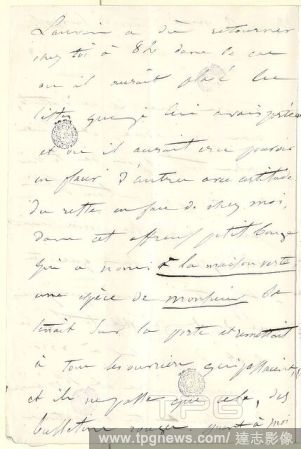 Lauvin a dû retourner
chez toi à 8h dans le cas
où il aurait placé les
que je lui avais
et où il aurait cru pouvoir
en faire d'autres avec certitude
Du reste en face de chez moi,
dans cet affreux petit bouge
qui a nom à la maison verte
une espèce de monsieur se
tenait sur la porte et remettait
à tous les ouvriers qui passaient,
et il ne passe que cela, des
bulletins rouges. quant à moi
TPG
www.tpgnews.com/ 達志影像